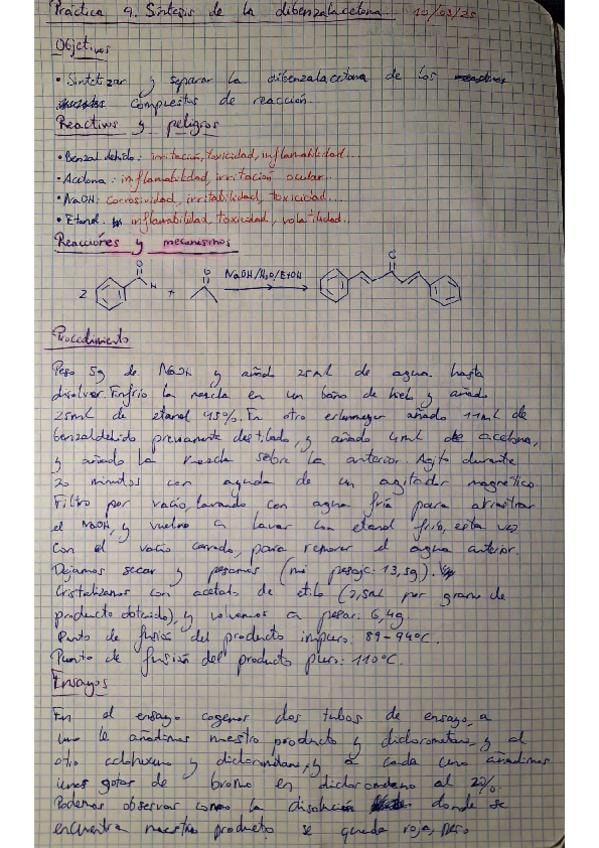 Práctica 9. Síntesis de la dibenzalacetona. 10/03/25
Objetivos
• Sintetizar y separar la dibenzalacetona de los
compuestos de reacción.
Reactivos y peligros
• Benzaldehído: irritación, toxicidad, inflamabilidad...
• Acetona: inflamabilidad, irritación ocular...
• NaOH: corrosividad, irritabilidad, toxicidad...
• Etanol: inflamabilidad, toxicidad, volatilidad...
Reacciones y mecanismos
2 O H + O NaOH/H2O/EtOH O
Procedimiento
Peso 5g de NaOH y añado 25mL de agua hasta
disolver. Enfrío la mezcla en un baño de hielo y añado
25mL de etanol 95%. En otro erlenmeyer añado 11mL de
benzaldehído previamente destilado, y añado 4mL de acetona,
y añado la mezcla sobre la anterior. Agito durante
20 minutos con ayuda de un agitador magnético.
Filtro por vacío, lavando con agua fría para arrastrar
el NaOH, y vuelvo a lavar con etanol frío, esta vez
con el vacío cerrado, para remover el agua anterior.
Dejamos secar y pesamos (mi pesaje: 13,5g).
Cristalizamos con acetato de etilo (2,5mL por gramo de
producto obtenido), y volvemos a pesar: 6,4g.
Punto de fusión del producto impuro: 89-94°C.
Punto de fusión del producto puro: 110°C.
Ensayos
En el ensayo cogemos dos tubos de ensayo, a
uno le añadimos nuestro producto y diclorometano, y al
otro ciclohexeno y diclorometano, y a cada uno añadimos
unas gotas de bromo en diclorometano al 2%.
Podemos observar como la disolución donde se
encuentra nuestro producto se queda roja, pero